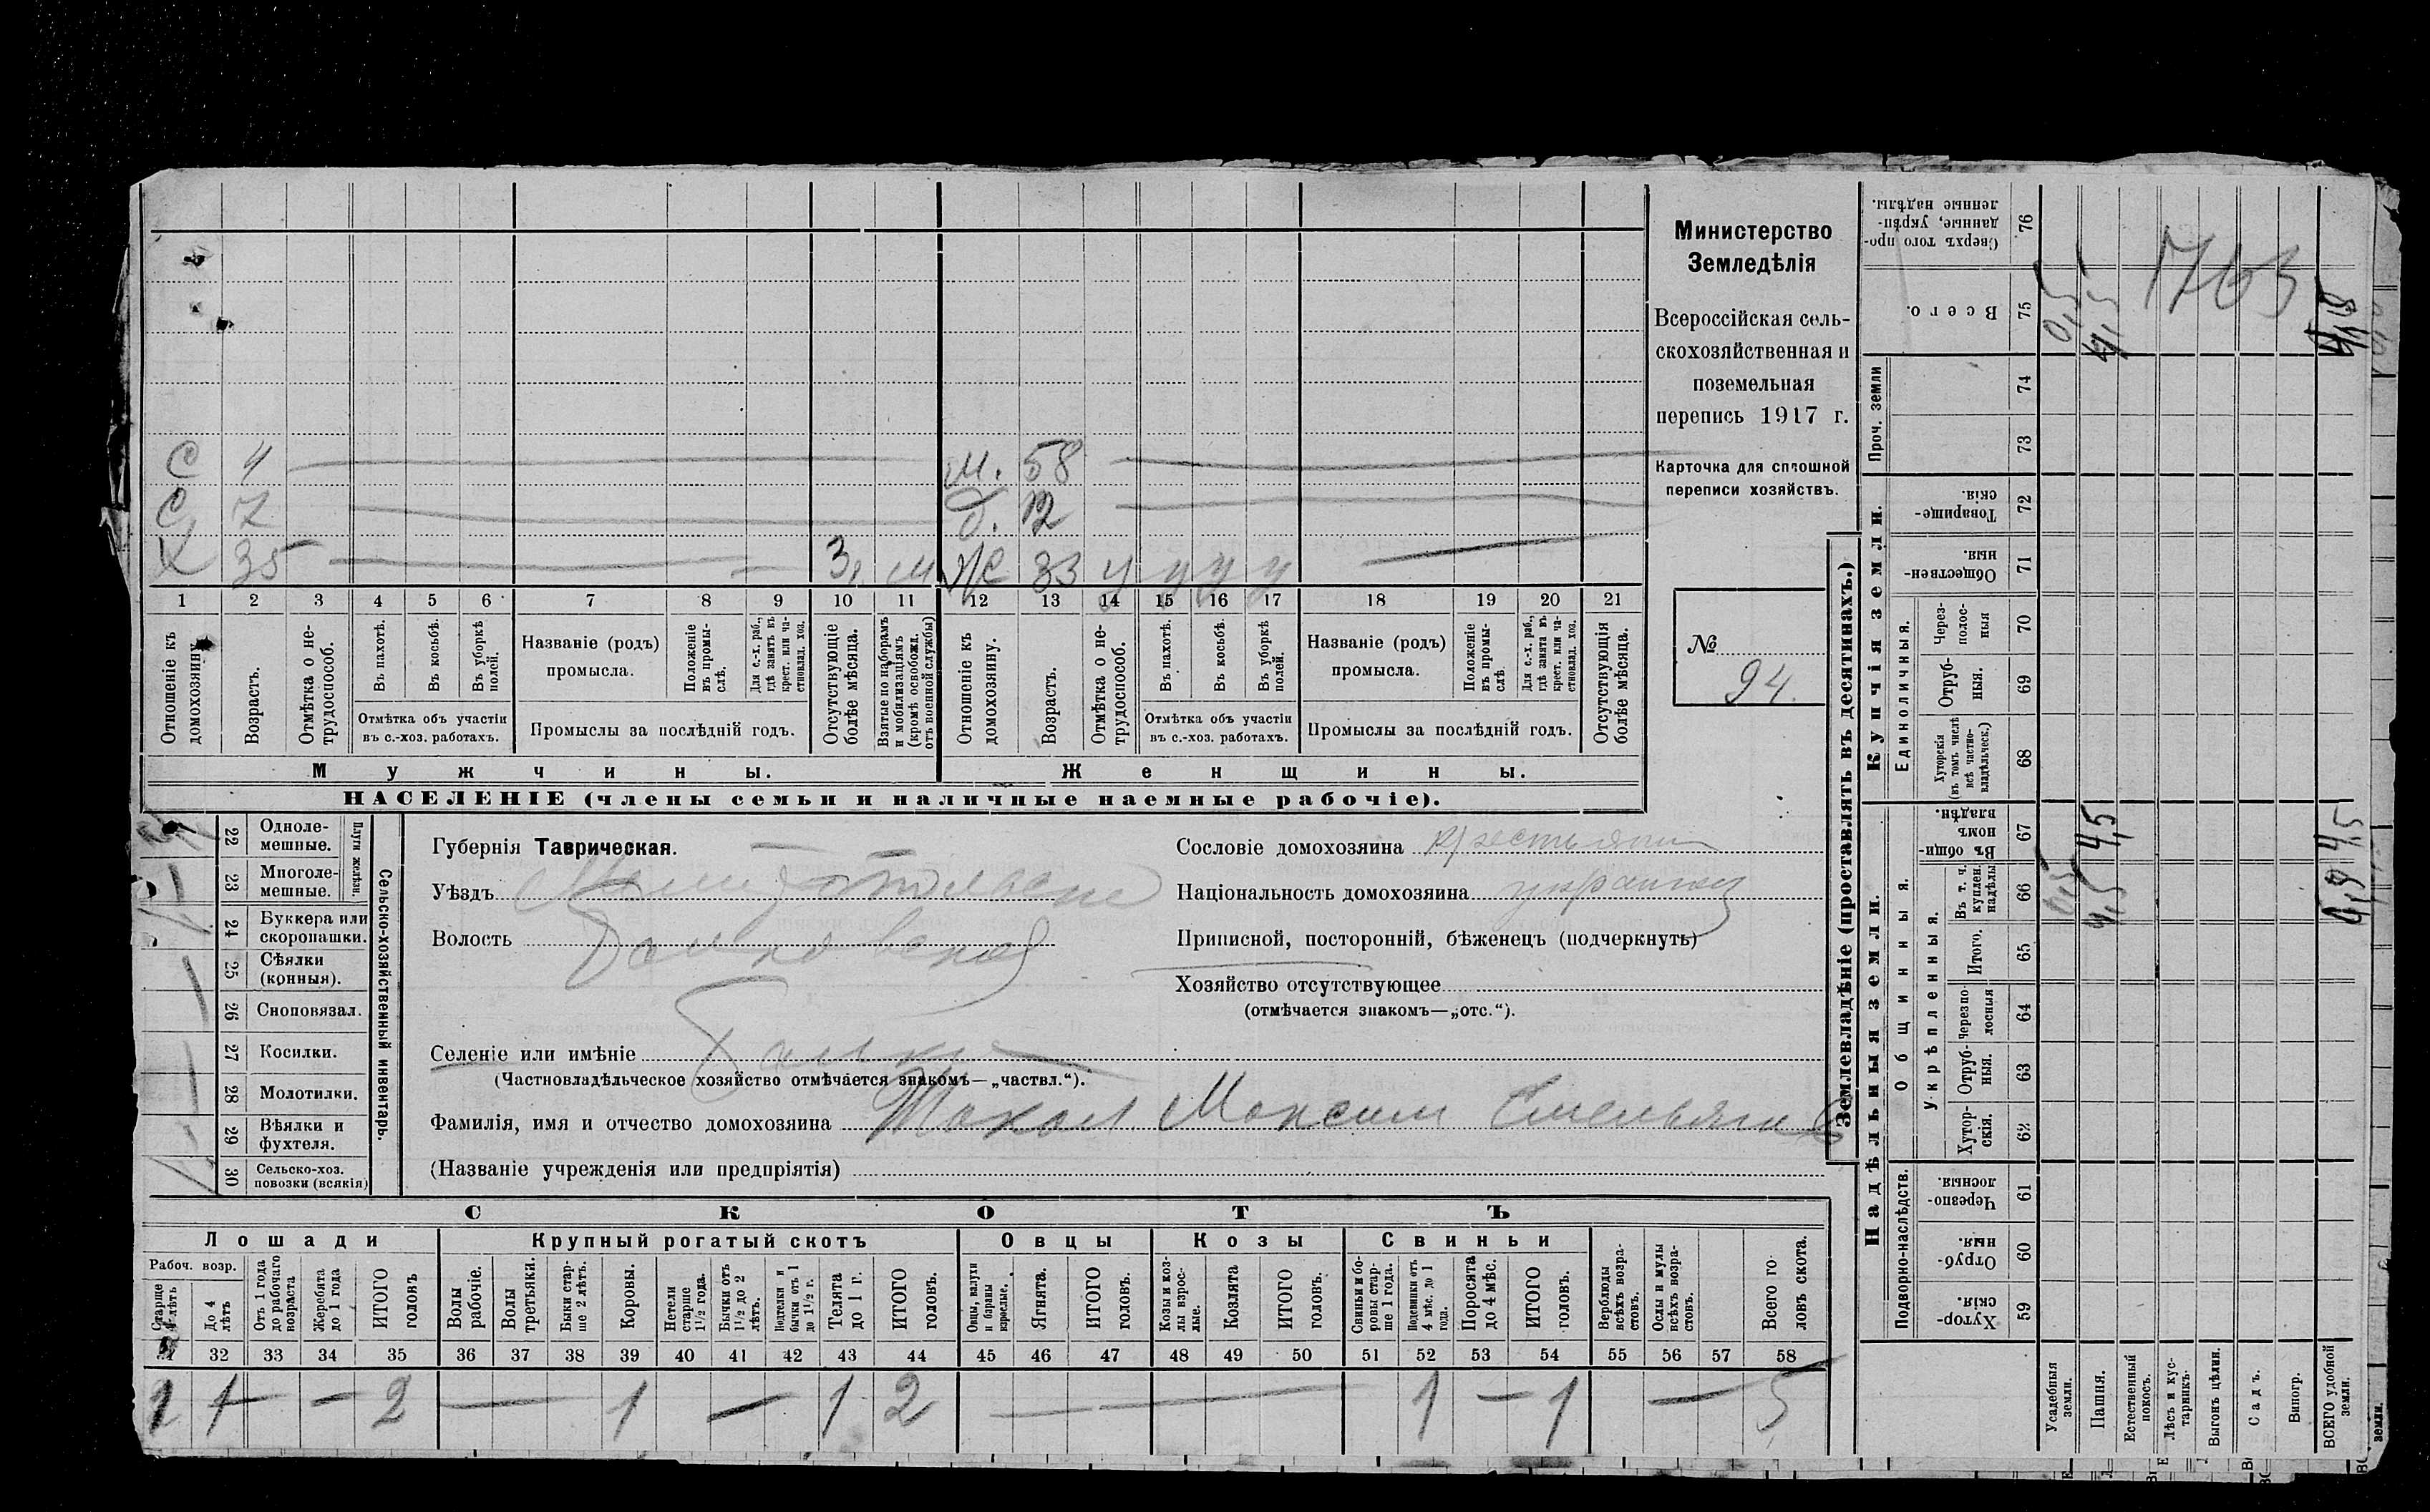 С 4 м. 58
С 7 д. 12
Х 35 3, м ж 33 у у у у
1 2 3 4 5 6 7 8 9 10 11 12 13 14 15 16 17 18 19 20 21
Отношеніе къ домохозяину.
Возрастъ.
Отмѣтка о не-трудоспособ.
Въ пахотѣ.
Въ косьбѣ.
Въ уборкѣ полей.
Отмѣтка объ участіи
въ с.-хоз. работахъ.
Названіе (родъ)
промысла.
Положеніе въ промы-слѣ.
Для с.-х. раб., гдѣ занятъ въ крест. или ча-стновлад. хоз.
Промыслы за послѣдній годъ.
Отсутствующіе болѣе мѣсяца.
Взятые по наборамъ и мобилизаціямъ (кромѣ освобожд. отъ военной службы)
Отношеніе къ домохозяину.
Возрастъ.
Отмѣтка о не-трудоспособ.
Въ пахотѣ.
Въ косьбѣ.
Въ уборкѣ полей.
Отмѣтка объ участіи
въ с.-хоз. работахъ.
Названіе (родъ)
промысла.
Положеніе въ промы-слѣ
Для с.-х. раб., гдѣ занята въ крест. или ча-стновлад. хоз.
Промыслы за послѣдній годъ.
Отсутствующія болѣе мѣсяца.
Мужчины.
Женщины.
НАСЕЛЕНІЕ (члены семьи и наличные наемные рабочіе).
Министерство
Земледѣлія
Всероссійская сель-
скохозяйственная и
поземельная
перепись 1917 г.
Карточка для сплошной
переписи хозяйствъ.
№
94.
22 Одноле-мешные.
23 Многоле-мешные.
Плуги желѣзн.
24 Буккера или скоропашки.
25 Сѣялки (конныя).
26 Сноповязал.
27 Косилки.
28 Молотилки.
29 Вѣялки и фухтеля.
30 Сельско-хоз. повозки (всякія)
Сельско-хозяйственный инвентарь.
Губернія Таврическая.
Уѣздъ Мелитопольскій
Волость
Селеніе или имѣніе Балки
(Частновладѣльческое хозяйство отмѣчается знакомъ—„частвл.“).
Фамилія, имя и отчество домохозяина Максим Емельянов
(Названіе учрежденія или предпріятія)
Сословіе домохозяина крестьянин
Національность домохозяина украинец
Приписной, посторонній, бѣженецъ (подчеркнуть)
Хозяйство отсутствующее
(отмѣчается знакомъ—„отс.“).
СКОТЪ
Лошади
Крупный рогатый скотъ
Овцы
Козы
Свиньи
Рабоч. возр.
Старше 4 лѣтъ
До 4 лѣтъ
Отъ 1 года до рабочаго возраста
Жеребята до 1 года
ИТОГО головъ
Волы рабочіе.
Волы третьяки.
Быки стар-ше 2 лѣтъ.
Коровы.
Нетели старше 1½ года.
Бычки отъ 1½ до 2 лѣтъ.
Подтелки и бычки отъ 1 до 1½ г.
Телята до 1 г.
ИТОГО головъ.
Овцы, валухи и бараны взрослые.
Ягнята.
ИТОГО головъ.
Козы и коз-лы взрос-лые.
Козлята
ИТОГО головъ.
Свиньи и бо-ровы стар-ше 1 года.
Подсвинки отъ 4 мѣс. до 1 года.
Поросята до 4 мѣс.
ИТОГО головъ.
Верблюды всѣхъ возра-стовъ.
Ослы и мулы всѣхъ возра-стовъ.
Всего го-ловъ скота.
32 33 34 35 36 37 38 39 40 41 42 43 44 45 46 47 48 49 50 51 52 53 54 55 56 57 58
1 1 — — 2 — 1 — 1 2 — — 1 — 1 — 5
Землевладѣніе (проставлять въ десятинахъ.)
Надѣльныя земли.
Купчія земли.
Проч. земли
Подворно-наслѣдств.
Общинныя.
Укрѣпленныя.
Единоличныя.
76 Сверхъ того про-данные, укрѣп-ленные надѣлы.
75 Всего.
74
73
72 Товарище-скія.
71 Обществен-ныя.
70 Через-полос-ныя
69 Отруб-ныя.
68 Хуторскія (въ томъ числѣ всѣ частно-владѣльческ.)
67 Въ общин-номъ владѣн.
66 Въ т. ч. куплен. надѣлы
65 Итого.
64 Черезпо-лосныя
63 Отруб-ныя.
62 Хутор-скія.
61 Черезпо-лосныя.
60 Отруб-ныя.
59 Хутор-скія.
Усадебныя земли.
Пашня.
Естественный покосъ.
Лѣсъ и кус-тарникъ.
Выгонъ цѣлин.
Садъ.
Виногр.
ВСЕГО удобной земли.
0,5
4,5
1763
4,5
4,5
4,5